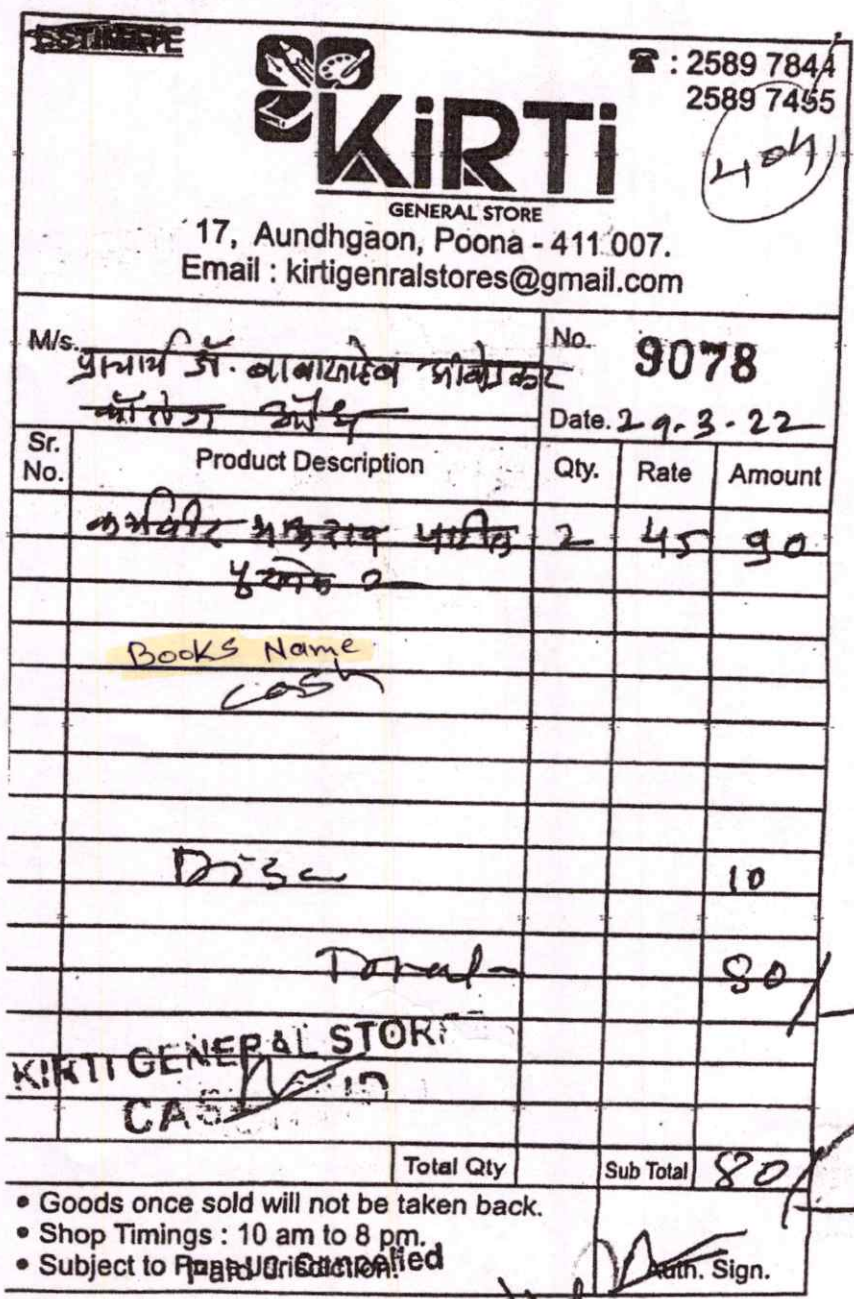 ESTIMATE
☎ : 2589 7844
2589 7455
404
KiRTi
GENERAL STORE
17, Aundhgaon, Poona - 411 007.
Email : kirtigenralstores@gmail.com
M/s. प्राचार्य डॉ. बाबासाहेब आंबेडकर
कॉलेज औंध
No. 9078
Date. 29.3-22
Sr. No. Product Description Qty. Rate Amount
कर्मवीर भाऊराव पाटील 2 45 90
Books Name
Cash
Disc 10
Total 80/
KIRTI GENERAL STORE
Total Qty Sub Total 80/
• Goods once sold will not be taken back.
• Shop Timings : 10 am to 8 pm.
• Subject to
Auth. Sign.